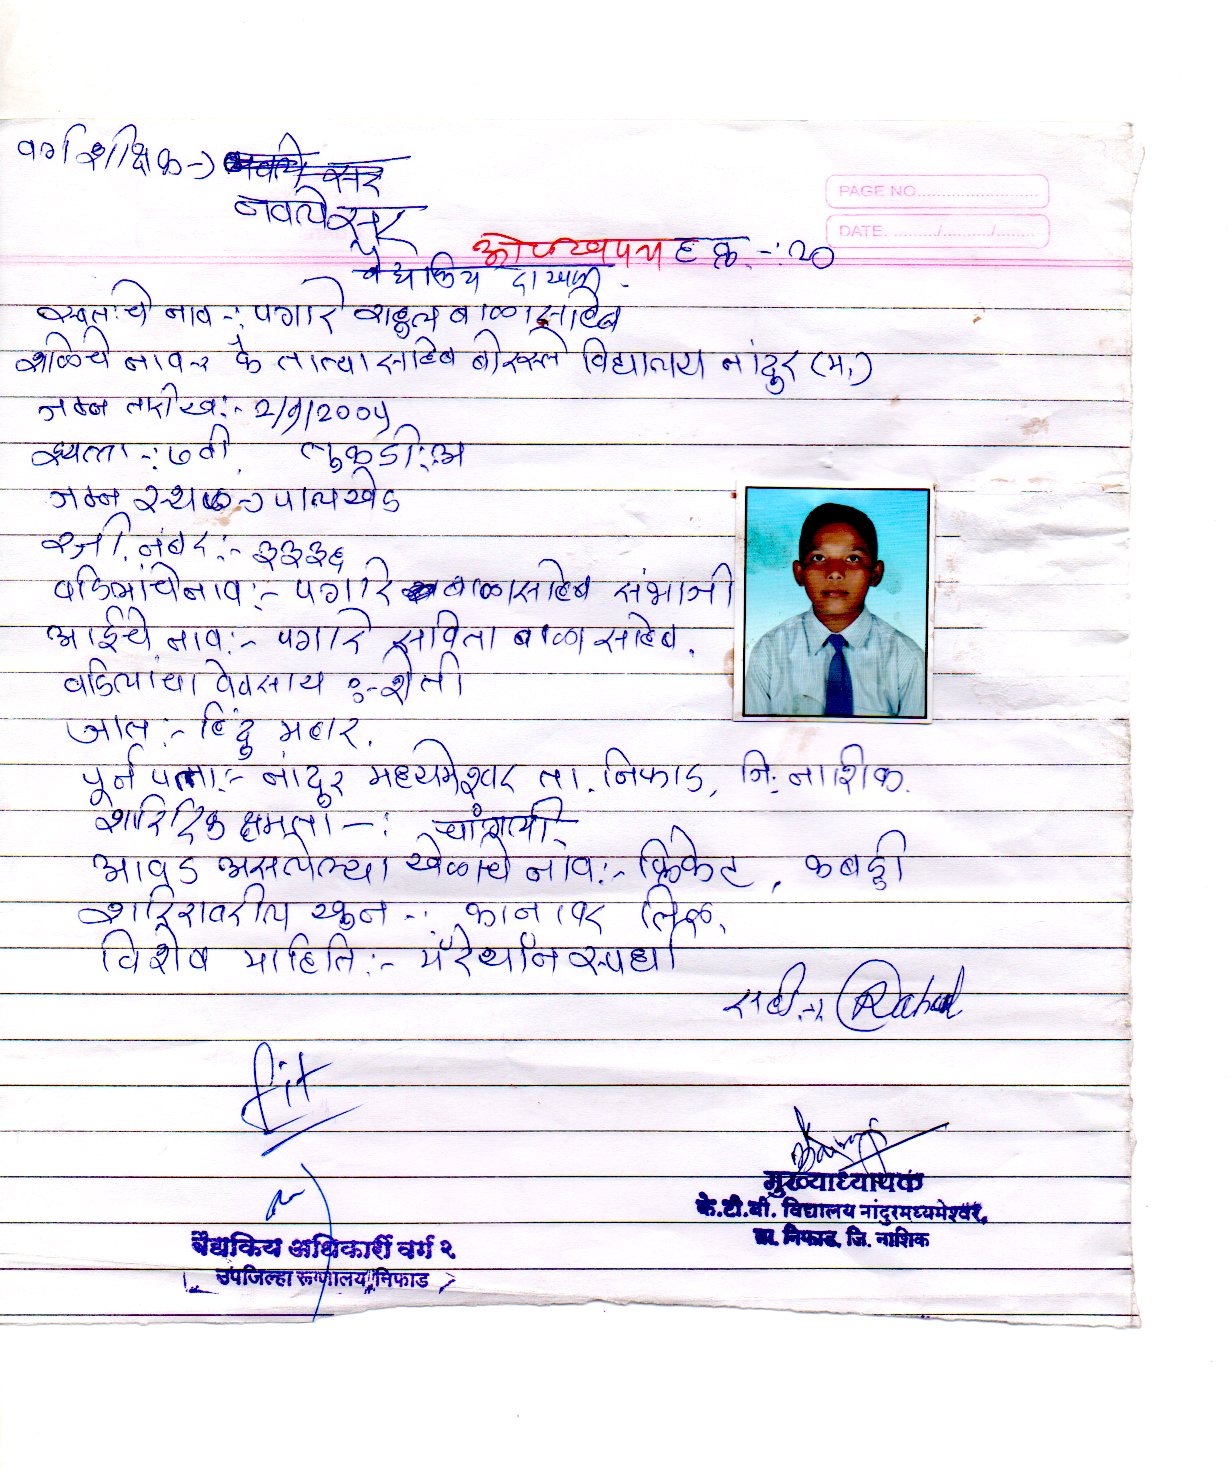 वर्गशिक्षक→ नवले सर
नवले सर
PAGE NO.
DATE. / /
ओळखपत्र ह क्र. -: २०
वैद्यकिय दाखला.
स्वतःचे नाव -: पगारे राहुल बाळासाहेब
शाळेचे नाव -: कै तात्यासाहेब बोरस्ते विद्यालय नांदुर (म.)
जन्म तारीख:- 2/9/2004
इयत्ता -: ७वी. तुकडी: अ
जन्म स्थळ -> पालखेड
रजी. नंबर:- ३३३६
वडिलांचे नाव:- पगारे बाळासाहेब संभाजी
आईचे नाव:- पगारे सविता बाळासाहेब.
वडिलांचा वेवसाय :- शेती
जात:- हिंदु महार.
पूर्न पत्ता:- नांदुर मध्यमेश्वर ता. निफाड, जि. नाशिक.
शारिरिक क्षमता -: चांगली
आवड असलेल्या खेळाचे नाव:- क्रिकेट, कबड्डी
शरिरावरील खुन -: कानावर तिळ.
विशेष माहिति:- मॅरेथॉन स्पर्धा
सही -: Rahul
fit
मुख्याध्यापक
के.टी.बी. विद्यालय नांदुरमध्यमेश्वर,
ता. निफाड, जि. नाशिक
वैद्यकिय अधिकारी वर्ग २
उपजिल्हा रूग्णालय, निफाड